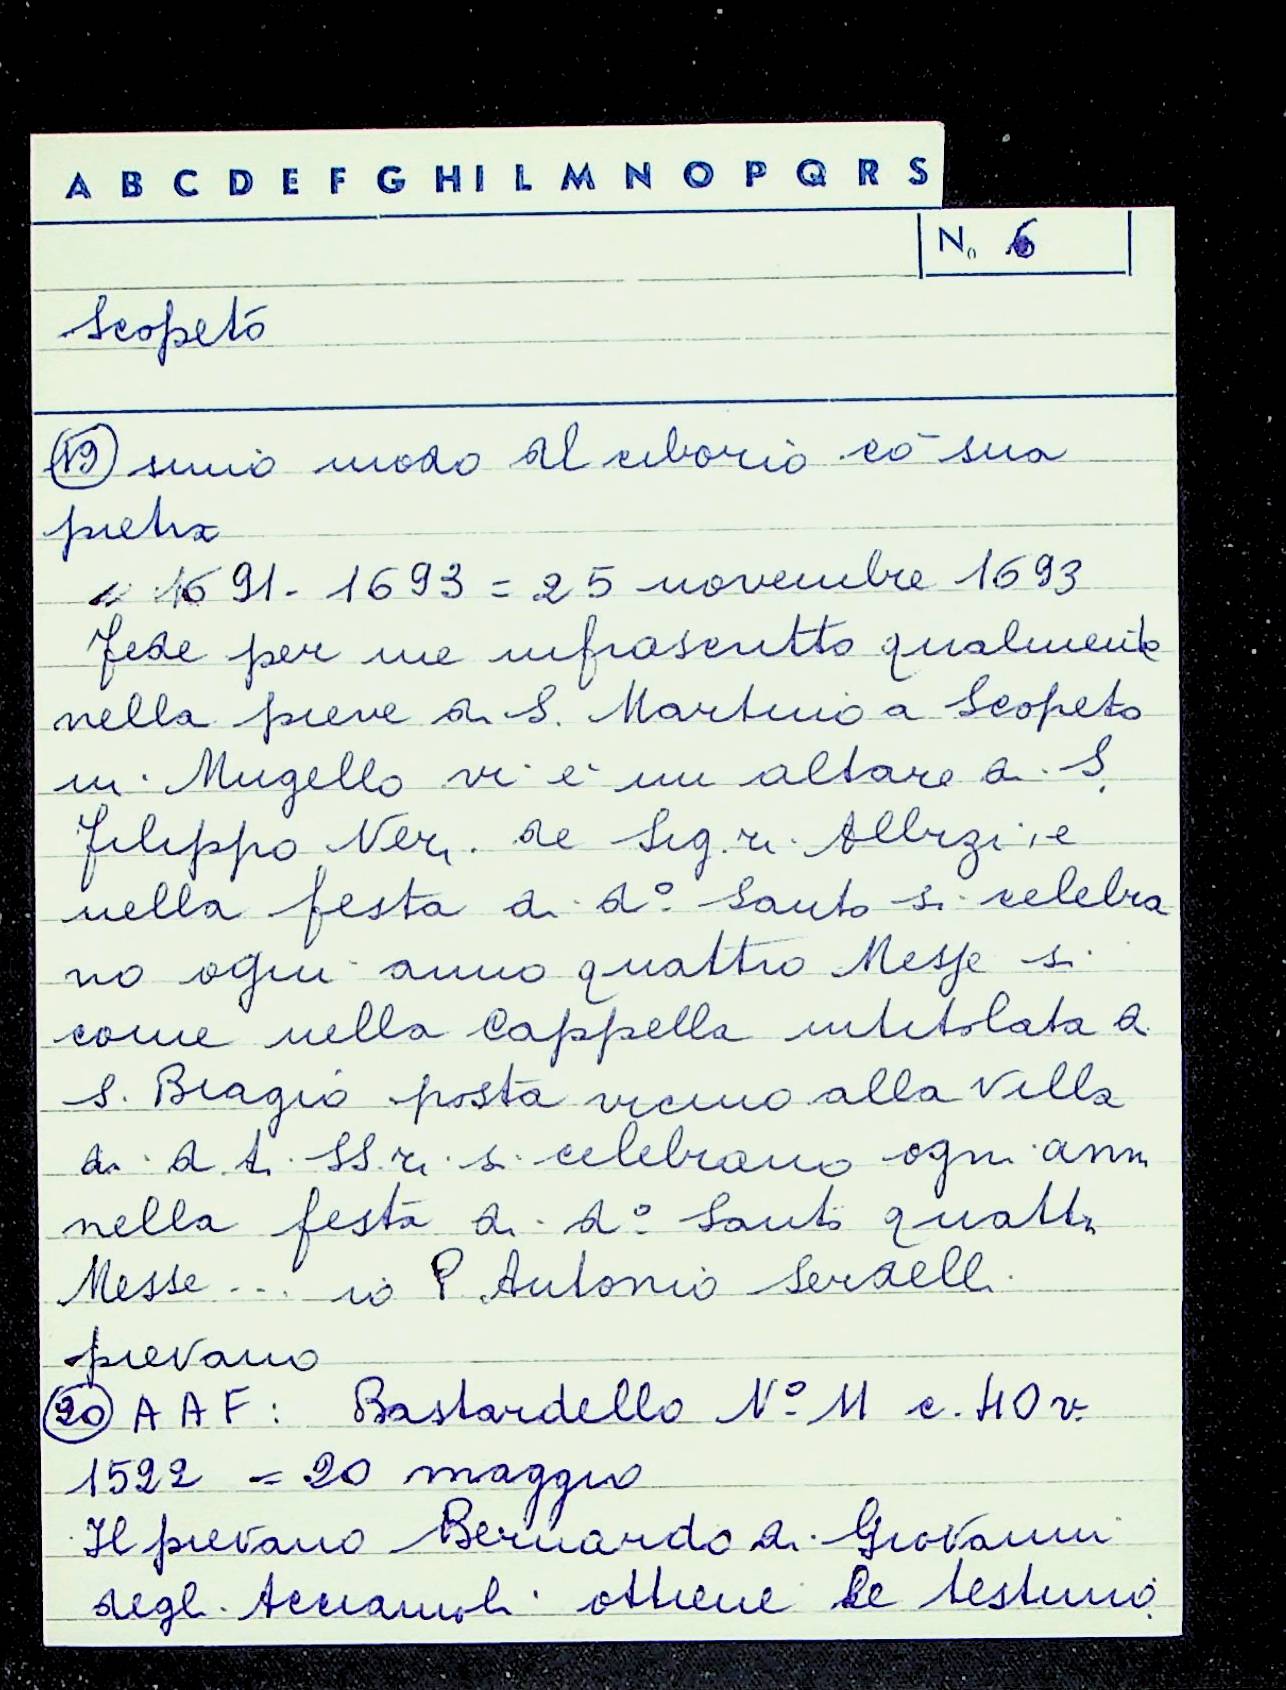 A B C D E F G H I L M N O P Q R S
N. 6
Scopeto
(19) simio modo al ciborio cō sua
pietra
" 1691 - 1693 = 25 novembre 1693
Fede per me infrascritto qualmente
nella pieve di S. Martino a Scopeto
in Mugello vi è un altare di S.
Filippo Neri de Sig.ri Albizi e
nella festa di d° Santo si celebra
no ogni anno quattro Messe si
come nella Cappella intitolata a
S. Biagio posta vicino alla Villa
di d.ti SS.ri si celebrano ogni anno
nella festa di d° Santo quattro
Messe ... io P Antonio Serdelli
pievano
(20) A A F: Bastardello N° 11 c. 40 v.
1522 = 20 maggio
Il pievano Bernardo di Giovanni
degli Acciaiuoli ottiene le testimo